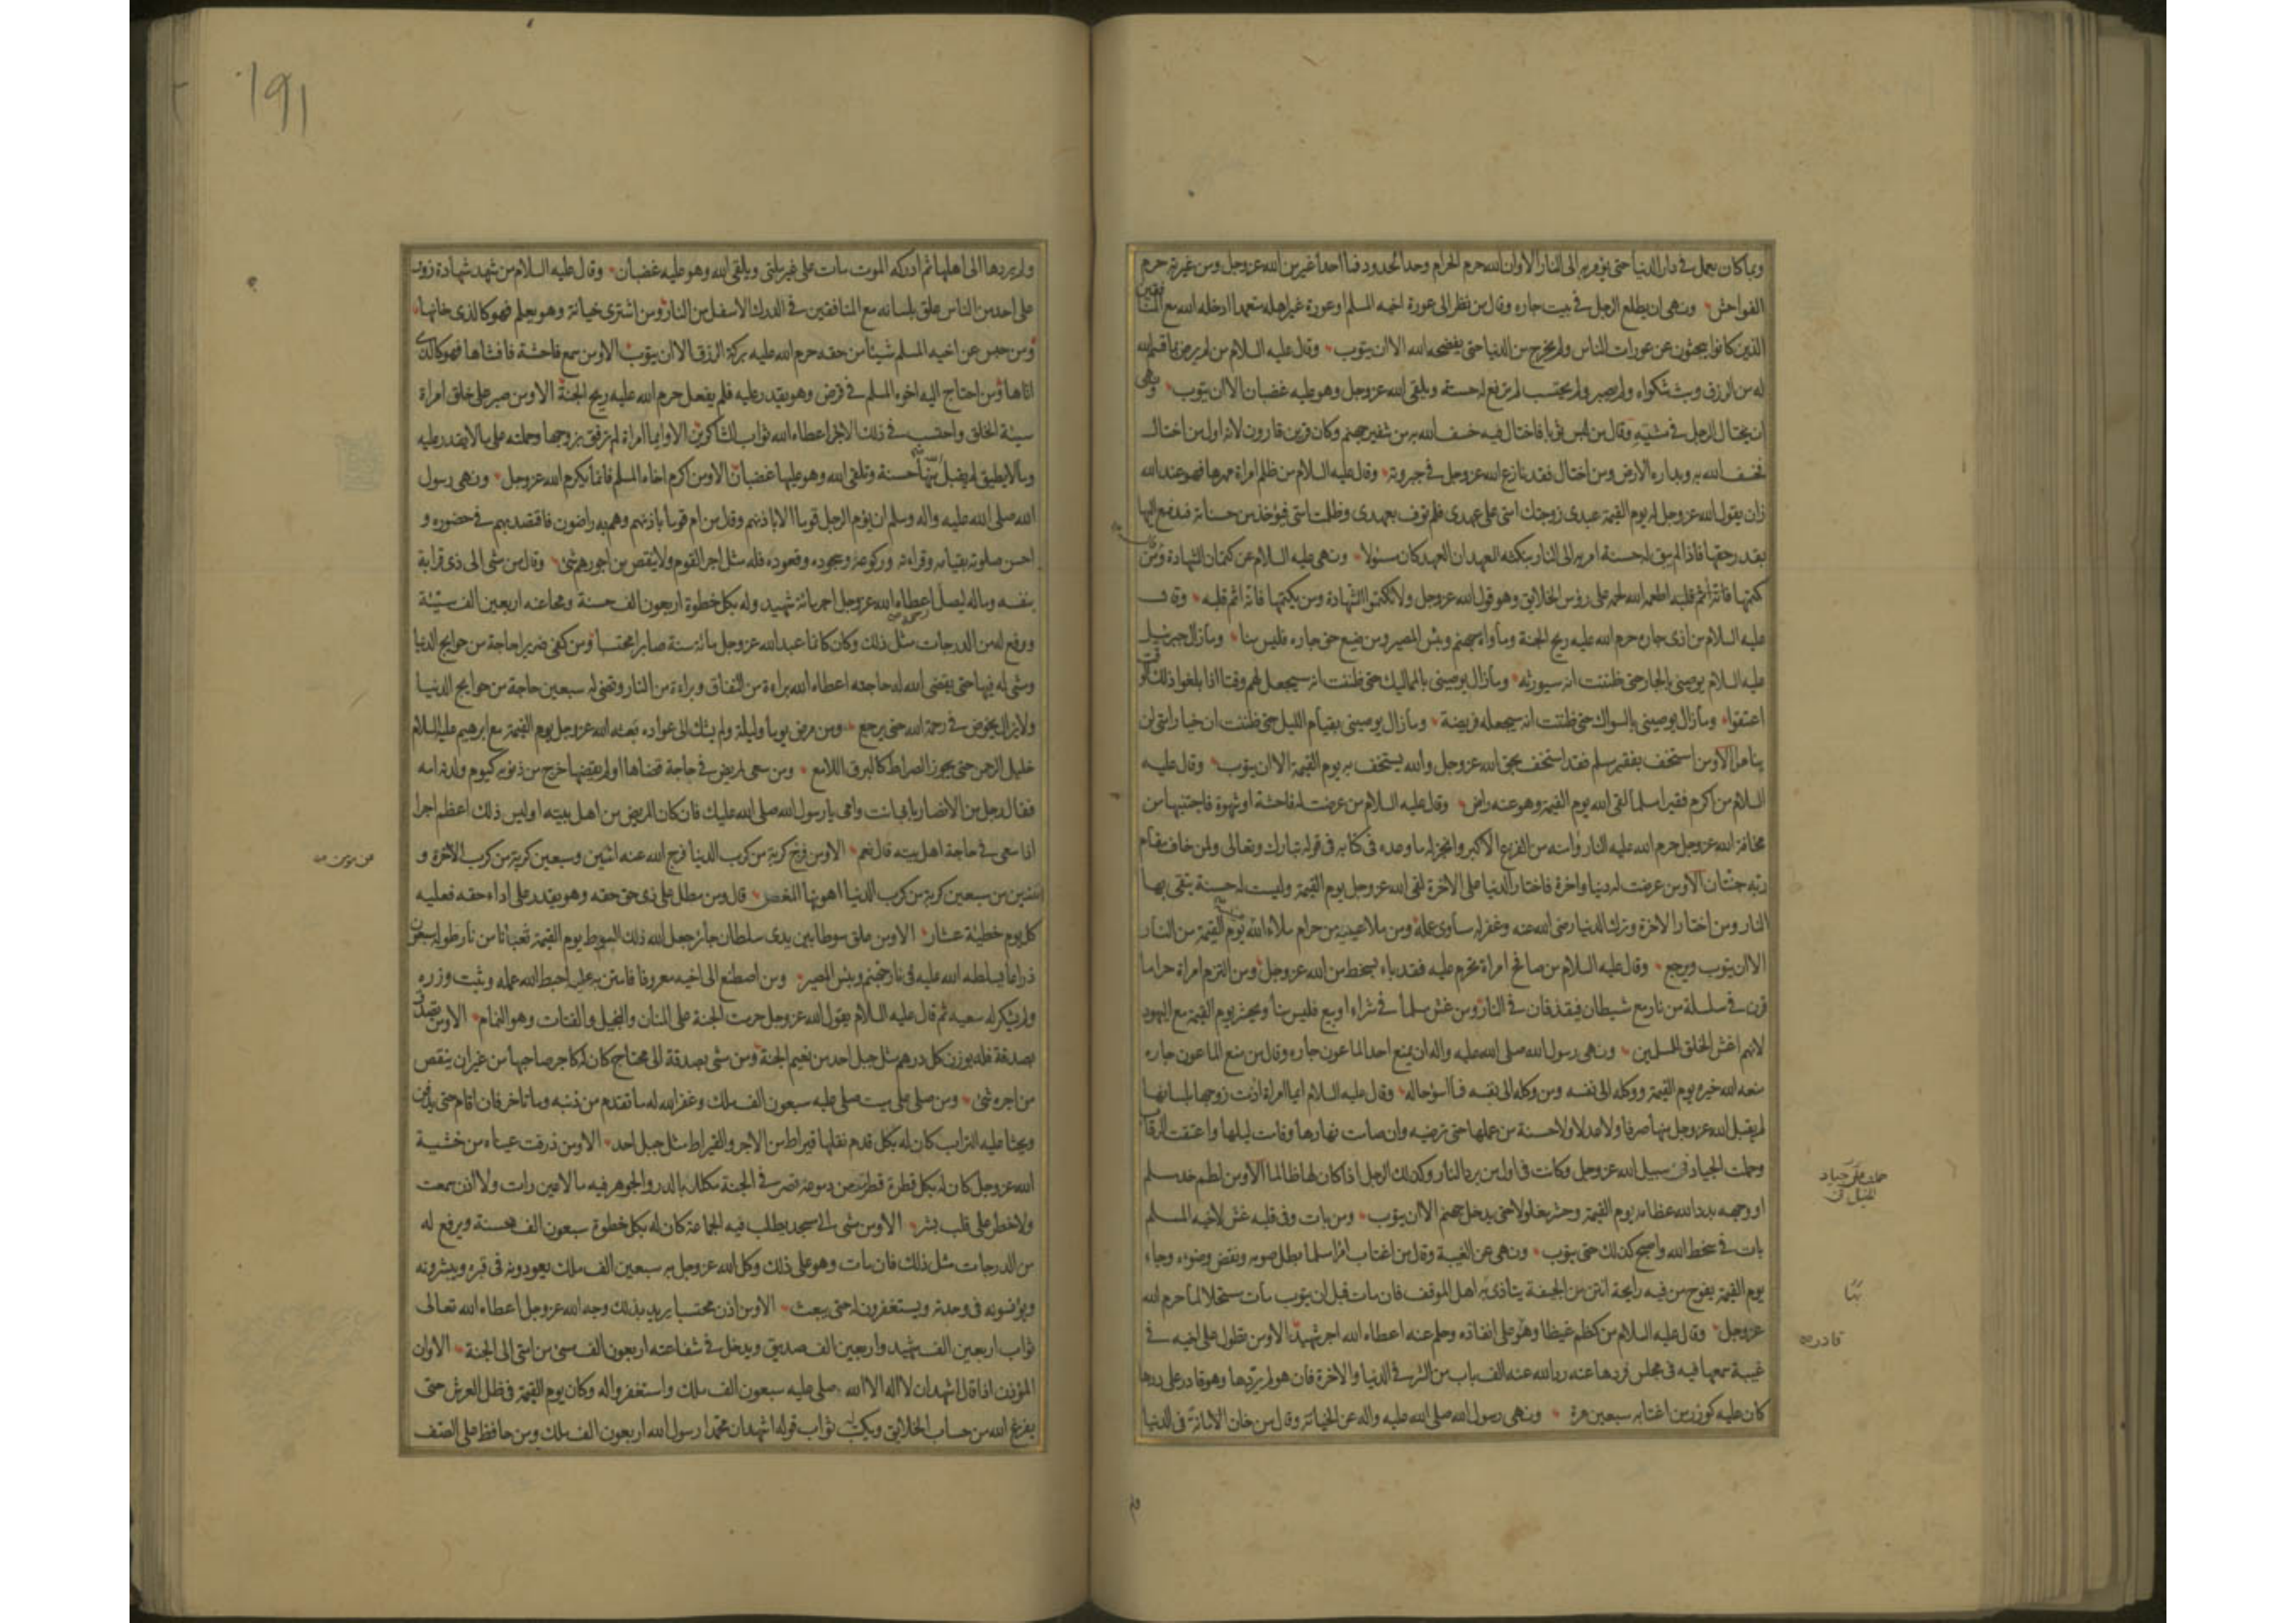 وبما كان يعمل في دار الدنيا حتى يؤمر به الى النار الا وان الله حرم الحرام وحد الحدود فما احد اغير من الله عز وجل ومن غيرته حرم
الفواحش ونهى ان يطلع الرجل في بيت جاره وقال من نظر الى عورة اخيه المسلم او عورة غير اهله متعمدا ادخله الله مع المنافقين
الذين كانوا يبحثون عن عورات الناس ولم يخرج من الدنيا حتى يفضحه الله الا ان يتوب وقال عليه السلام من لم يرض بما قسم الله
له من الرزق وبث شكواه ولم يصبر ولم يحتسب لم ترفع له حسنة ويلقى الله عز وجل وهو عليه غضبان الا ان يتوب ونهى
ان يختال الرجل في مشيه وقال من لبس ثوبا فاختال فيه خسف الله به من شفير جهنم وكان قرين قارون لانه اول من اختال
فخسف الله به وبداره الارض ومن اختال فقد نازع الله عز وجل في جبروته وقال عليه السلام من ظلم امراة مهرها فهو عند الله
زان يقول الله عز وجل له يوم القيمة عبدى زوجتك امتى على عهدى فلم توف بعهدى وظلمت امتى فيؤخذ من حسناته فيدفع اليها
بقدر حقها فاذا لم يبق له حسنة امر به الى النار بنكثه العهد ان العهد كان مسئولا ونهى عليه السلام عن كتمان الشهادة وقال من
كتمها فانه آثم قلبه اطعمه الله لحمه على رؤس الخلايق وهو قول الله عز وجل ولا تكتموا الشهادة ومن يكتمها فانه آثم قلبه وقال
عليه السلام من اذى جاره حرم الله عليه ريح الجنة ومأواه جهنم وبئس المصير ومن ضيع حق جاره فليس منا وما زال جبرئيل
عليه السلام يوصينى بالجار حتى ظننت انه سيورثه وما زال يوصينى بالمماليك حتى ظننت انه سيجعل لهم وقتا اذا بلغوا ذلك الوقت
اعتقوا وما زال يوصينى بالسواك حتى ظننت انه سيجعله فريضة وما زال يوصينى بقيام الليل حتى ظننت ان خيار امتى لن
يناموا الا ومن استخف بفقير مسلم فقد استخف بحق الله عز وجل والله يستخف به يوم القيمة الا ان يتوب وقال عليه
السلام من اكرم فقيرا مسلما لقى الله يوم القيمة وهو عنه راض وقال عليه السلام من عرضت له فاحشة او شهوة فاجتنبها من
مخافة الله عز وجل حرم الله عليه النار وامنه من الفزع الاكبر وانجز له ما وعده في كتابه في قوله تبارك وتعالى ولمن خاف مقام
ربه جنتان الا ومن عرضت له دنيا واخرة فاختار الدنيا على الاخرة لقى الله عز وجل يوم القيمة وليست له حسنة يتقى بها
النار ومن اختار الاخرة وترك الدنيا رضى الله عنه وغفر له مساوى عمله ومن ملا عينيه من حرام ملاه الله يوم القيمة من النار
الا ان يتوب ويرجع وقال عليه السلام من صافح امراة تحرم عليه فقد باء بسخط من الله عز وجل ومن التزم امراة حراما
قرن في سلسلة من نار مع شيطان فيقذفان في النار ومن غش مسلما في شراء او بيع فليس منا ويحشر يوم القيمة مع اليهود
لانهم اغش الخلق للمسلمين ونهى رسول الله صلى الله عليه واله ان يمنع احد الماعون جاره وقال من منع الماعون جاره
منعه الله خيره يوم القيمة ووكله الى نفسه ومن وكله الى نفسه فما اسوء حاله وقال عليه السلام ايما امراة اذت زوجها بلسانها
لم يقبل الله عز وجل منها صرفا ولا عدلا ولا حسنة من عملها حتى ترضيه وان صامت نهارها وقامت ليلها واعتقت الرقاب
وحملت الجياد في سبيل الله عز وجل وكانت في اول من يرد النار وكذلك الرجل اذا كان لها ظالما الا ومن لطم خد مسلم
او وجهه بدد الله عظامه يوم القيمة وحشر مغلولا حتى يدخل جهنم الا ان يتوب ومن بات وفى قلبه غش لاخيه المسلم
بات في سخط الله واصبح كذلك حتى يتوب ونهى عن الغيبة وقال من اغتاب امرا مسلما بطل صومه ونقض وضوءه وجاء
يوم القيمة يفوح من فيه رايحة انتن من الجيفة يتاذى به اهل الموقف فان مات قبل ان يتوب مات مستحلا لما حرم الله
عز وجل وقال عليه السلام من كظم غيظا وهو على انفاذه وحلم عنه اعطاه الله اجر شهيد الا ومن تطول على اخيه في
غيبة سمعها فيه في مجلس فردها عنه رد الله عنه الف باب من الشر في الدنيا والاخرة فان هو لم يردها وهو قادر على ردها
كان عليه كوزر من اغتابه سبعين مرة ونهى رسول الله صلى الله عليه واله عن الخيانة وقال من خان الامانة في الدنيا
قادر
191
ولم يردها الى اهلها ثم ادركه الموت مات على غير ملتى ويلقى الله وهو عليه غضبان وقال عليه السلام من شهد شهادة زور
على احد من الناس علق بلسانه مع المنافقين في الدرك الاسفل من النار ومن اشترى خيانة وهو يعلم فهو كالذى خانها
ومن حبس عن اخيه المسلم شيئا من حقه حرم الله عليه بركة الرزق الا ان يتوب الا ومن سمع فاحشة فافشاها فهو كالذى
اتاها ومن احتاج اليه اخوه المسلم في قرض وهو يقدر عليه فلم يفعل حرم الله عليه ريح الجنة الا ومن صبر على خلق امراة
سيئة الخلق واحتسب في ذلك الاجر اعطاه الله ثواب الشاكرين الا وايما امراة لم ترفق بزوجها وحملته على ما لا يقدر عليه
وما لا يطيق لم يقبل منها حسنة وتلقى الله وهو عليها غضبان الا ومن اكرم اخاه المسلم فانما يكرم الله عز وجل ونهى رسول
الله صلى الله عليه واله وسلم ان يؤم الرجل قوما الا باذنهم وقال من ام قوما باذنهم وهم به راضون فاقتصد بهم في حضوره و
احسن صلوته بقيامه وقراءته وركوعه وسجوده وقعوده فله مثل اجر القوم ولا ينقص من اجورهم شئ وقال من مشى الى ذى قرابة
بنفسه وماله ليصل اعطاه الله عز وجل اجر مائة شهيد وله بكل خطوة اربعون الف حسنة ومحا عنه اربعين الف سيئة
ورفع له من الدرجات مثل ذلك وكان كانما عبد الله عز وجل مائة سنة صابرا محتسبا ومن كفى ضريرا حاجة من حوايج الدنيا
ومشى له فيها حتى يقضى الله له حاجته اعطاه الله براءة من النفاق وبراءة من النار وقضى له سبعين حاجة من حوايج الدنيا
ولا يزال يخوض في رحمة الله حتى يرجع ومن مرض يوما وليلة ولم يشك الى عواده بعثه الله عز وجل يوم القيمة مع ابرهيم عليه السلام
خليل الرحمن حتى يجوز الصراط كالبرق اللامع ومن سعى لمريض في حاجة قضاها او لم يقضها خرج من ذنوبه كيوم ولدته امه
فقال رجل من الانصار بابى انت وامى يا رسول الله صلى الله عليك فان كان المريض من اهل بيته او ليس ذلك اعظم اجرا
اذا سعى في حاجة اهل بيته قال نعم الا ومن فرج كربة من كرب الدنيا فرج الله عنه اثنين وسبعين كربة من كرب الاخرة و
اثنتين من سبعين كربة من كرب الدنيا اهونها المغص قال ومن مطل على ذى حق حقه وهو يقدر على اداء حقه فعليه
كل يوم خطيئة عشار الا ومن علق سوطا بين يدى سلطان جائر جعل الله ذلك السوط يوم القيمة ثعبانا من نار طوله سبعون
ذراعا يسلطه الله عليه في نار جهنم وبئس المصير ومن اصطنع الى اخيه معروفا فامتن به عليه احبط الله عمله وثبت وزره
ولم يشكر له سعيه ثم قال عليه السلام يقول الله عز وجل حرمت الجنة على المنان والبخيل والقتات وهو النمام الا ومن تصدق
بصدقة فله بوزن كل درهم مثل جبل احد من نعيم الجنة ومن مشى بصدقة الى محتاج كان له كاجر صاحبها من غير ان ينقص
من اجره شئ ومن صلى على ميت صلى عليه سبعون الف ملك وغفر الله له ما تقدم من ذنبه وما تاخر فان اقام حتى يدفن
ويحثا عليه التراب كان له بكل قدم نقلها قيراط من الاجر والقيراط مثل جبل احد الا ومن ذرفت عيناه من خشية
الله عز وجل كان له بكل قطرة قطرت من دموعه قصر في الجنة مكلل بالدر والجوهر فيه ما لا عين رات ولا اذن سمعت
ولا خطر على قلب بشر الا ومن مشى الى مسجد يطلب فيه الجماعة كان له بكل خطوة سبعون الف حسنة ويرفع له
من الدرجات مثل ذلك فان مات وهو على ذلك وكل الله عز وجل به سبعين الف ملك يعودونه في قبره ويبشرونه
ويؤنسونه في وحدته ويستغفرون له حتى يبعث الا ومن اذن محتسبا يريد بذلك وجه الله عز وجل اعطاه الله تعالى
ثواب اربعين الف شهيد واربعين الف صديق ويدخل في شفاعته اربعون الف مسئ من امتى الى الجنة الا وان
المؤذن اذا قال اشهد ان لا اله الا الله صلى عليه سبعون الف ملك واستغفروا له وكان يوم القيمة في ظل العرش حتى
يفرغ الله من حساب الخلايق ويكتب ثواب قوله اشهد ان محمدا رسول الله اربعون الف ملك ومن حافظ على الصف